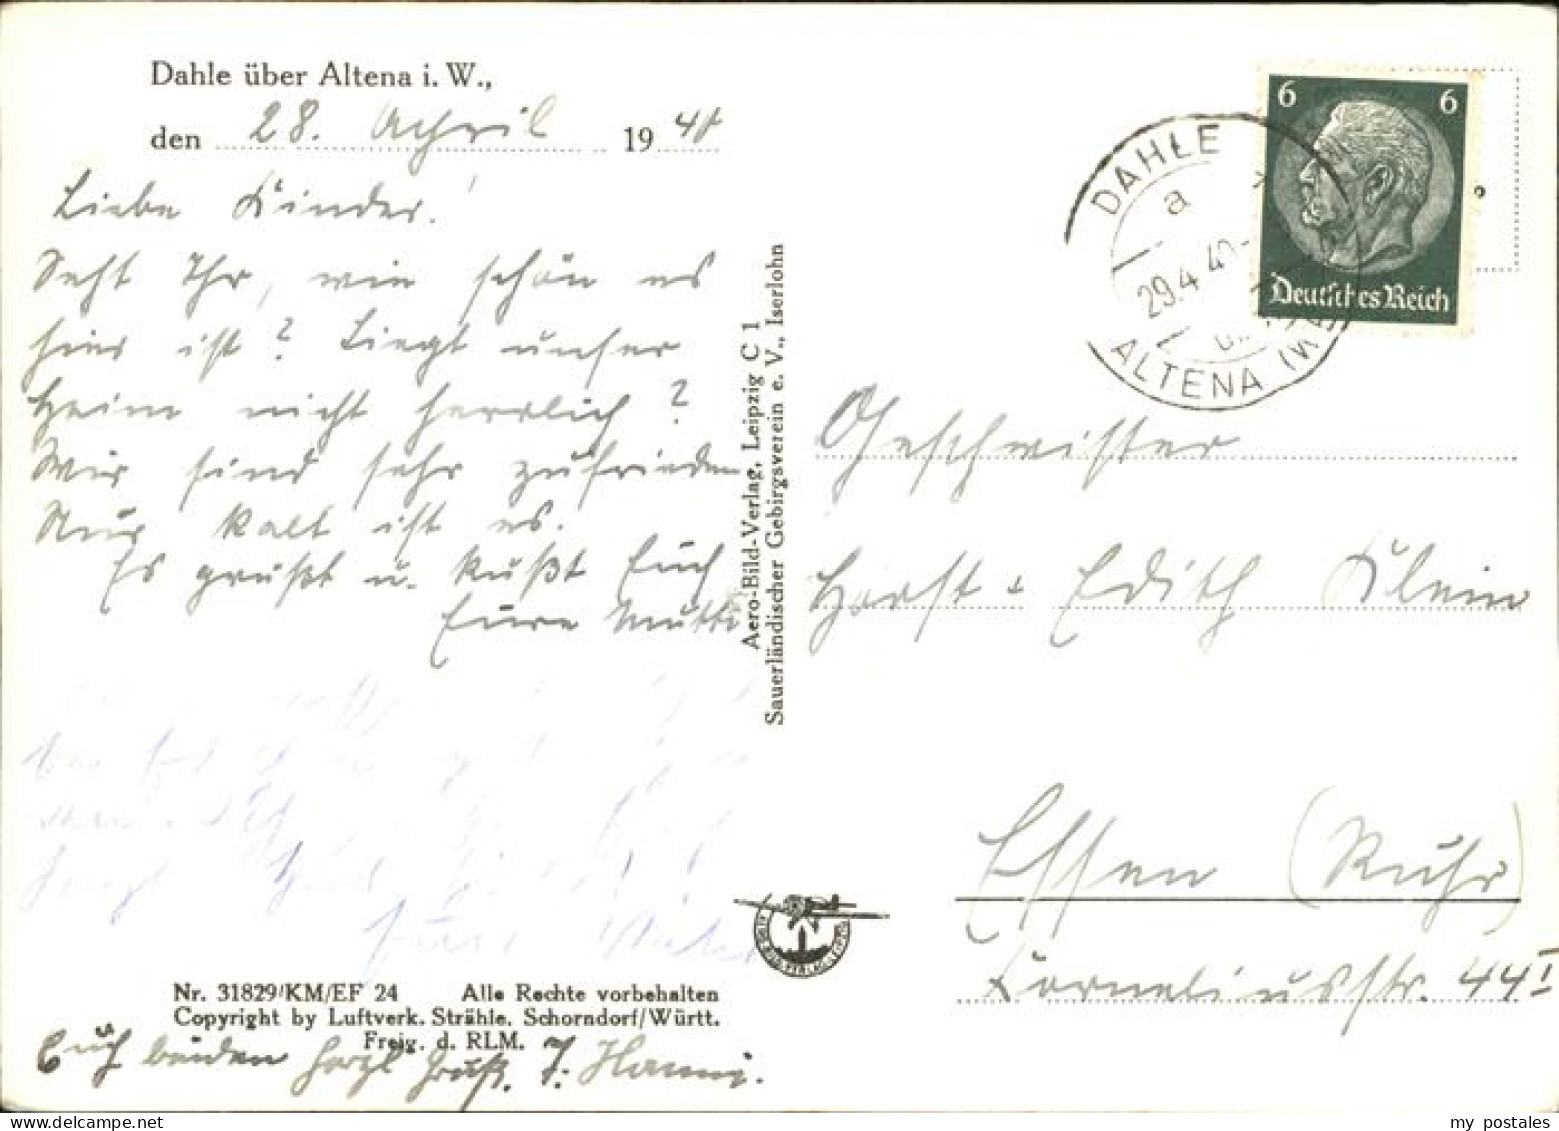 Dahle über Altena i. W.,
den 28. April 1940
Liebe Kinder!
Seht Ihr, wie schön es
hier ist? Liegt unser
Heim nicht herrlich?
Wir sind sehr zufrieden
Nur kalt ist es.
Es grüßt u. küßt Euch
Eure Mutti
Nr. 31829/KM/EF 24 Alle Rechte vorbehalten
Copyright by Luftverk. Strähle, Schorndorf/Württ.
Freig. d. RLM.
Euch beiden herzl Gruß. F. Hanni.
Aero-Bild-Verlag, Leipzig C 1
Sauerländischer Gebirgsverein e. V., Iserlohn
DAHLE
a
29.4.40
ALTENA (W
6 6
Deutsches Reich
Geschwister
Horst + Edith Klein
Essen (Ruhr)
Korneliusstr. 44 I
AERO-BILD-VERLAG-LEIPZIG
my postales